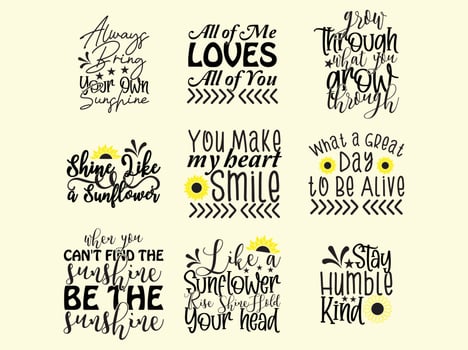 Always
Bring
Your Own
Sunshine
All of Me
LOVES
All of You
grow
through
what you
grow
through
Shine Like
a Sunflower
YOU MAKE
my heart
SMILE
What a Great
DAY
TO BE ALIVE
when you
CAN'T FIND THE
sunshine
BE THE
sunshine
Like a
Sunflower
Rise Shine Hold
Your head
Stay
Humble
Kind